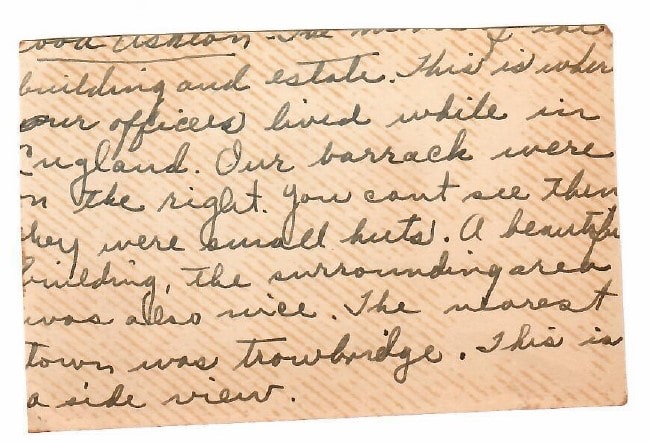 ood Ashton the name of the
building and estate. This is wher
our officers lived while in
England. Our barrack were
n the right. You cant see them
hey were small huts. A beautifu
building, the surrounding area
was also nice. The nearest
town was trowbridge. This is
a side view.